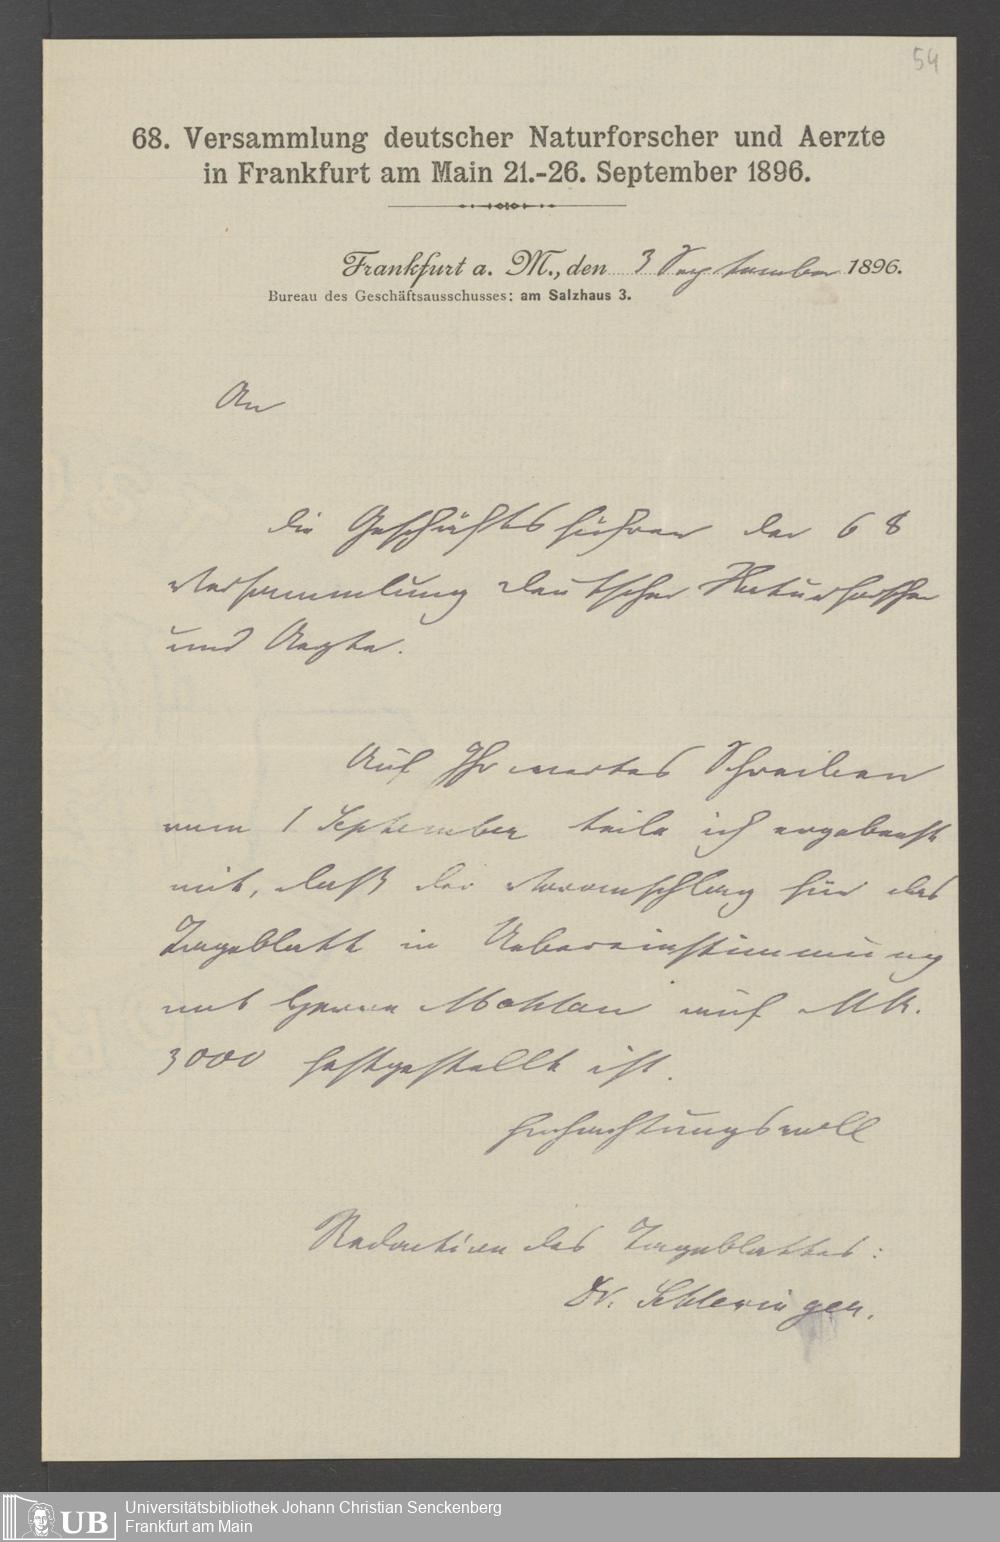 54
68. Versammlung deutscher Naturforscher und Aerzte
in Frankfurt am Main 21.-26. September 1896.
Frankfurt a. M., den 3 September 1896.
Bureau des Geschäftsausschusses: am Salzhaus 3.
An
die Geschäftsführer der 68
Versammlung deutscher Naturforscher
und Aerzte.
Auf Ihr wertes Schreiben
vom 1 September teile ich ergebenst
mit, daß der Voranschlag für das
Tageblatt in Uebereinstimmung
mit Herrn Mahlau auf Mk.
3000 festgestellt ist.
Hochachtungsvoll
Redaction des Tageblattes:
Dr.
UB
Universitätsbibliothek Johann Christian Senckenberg
Frankfurt am Main